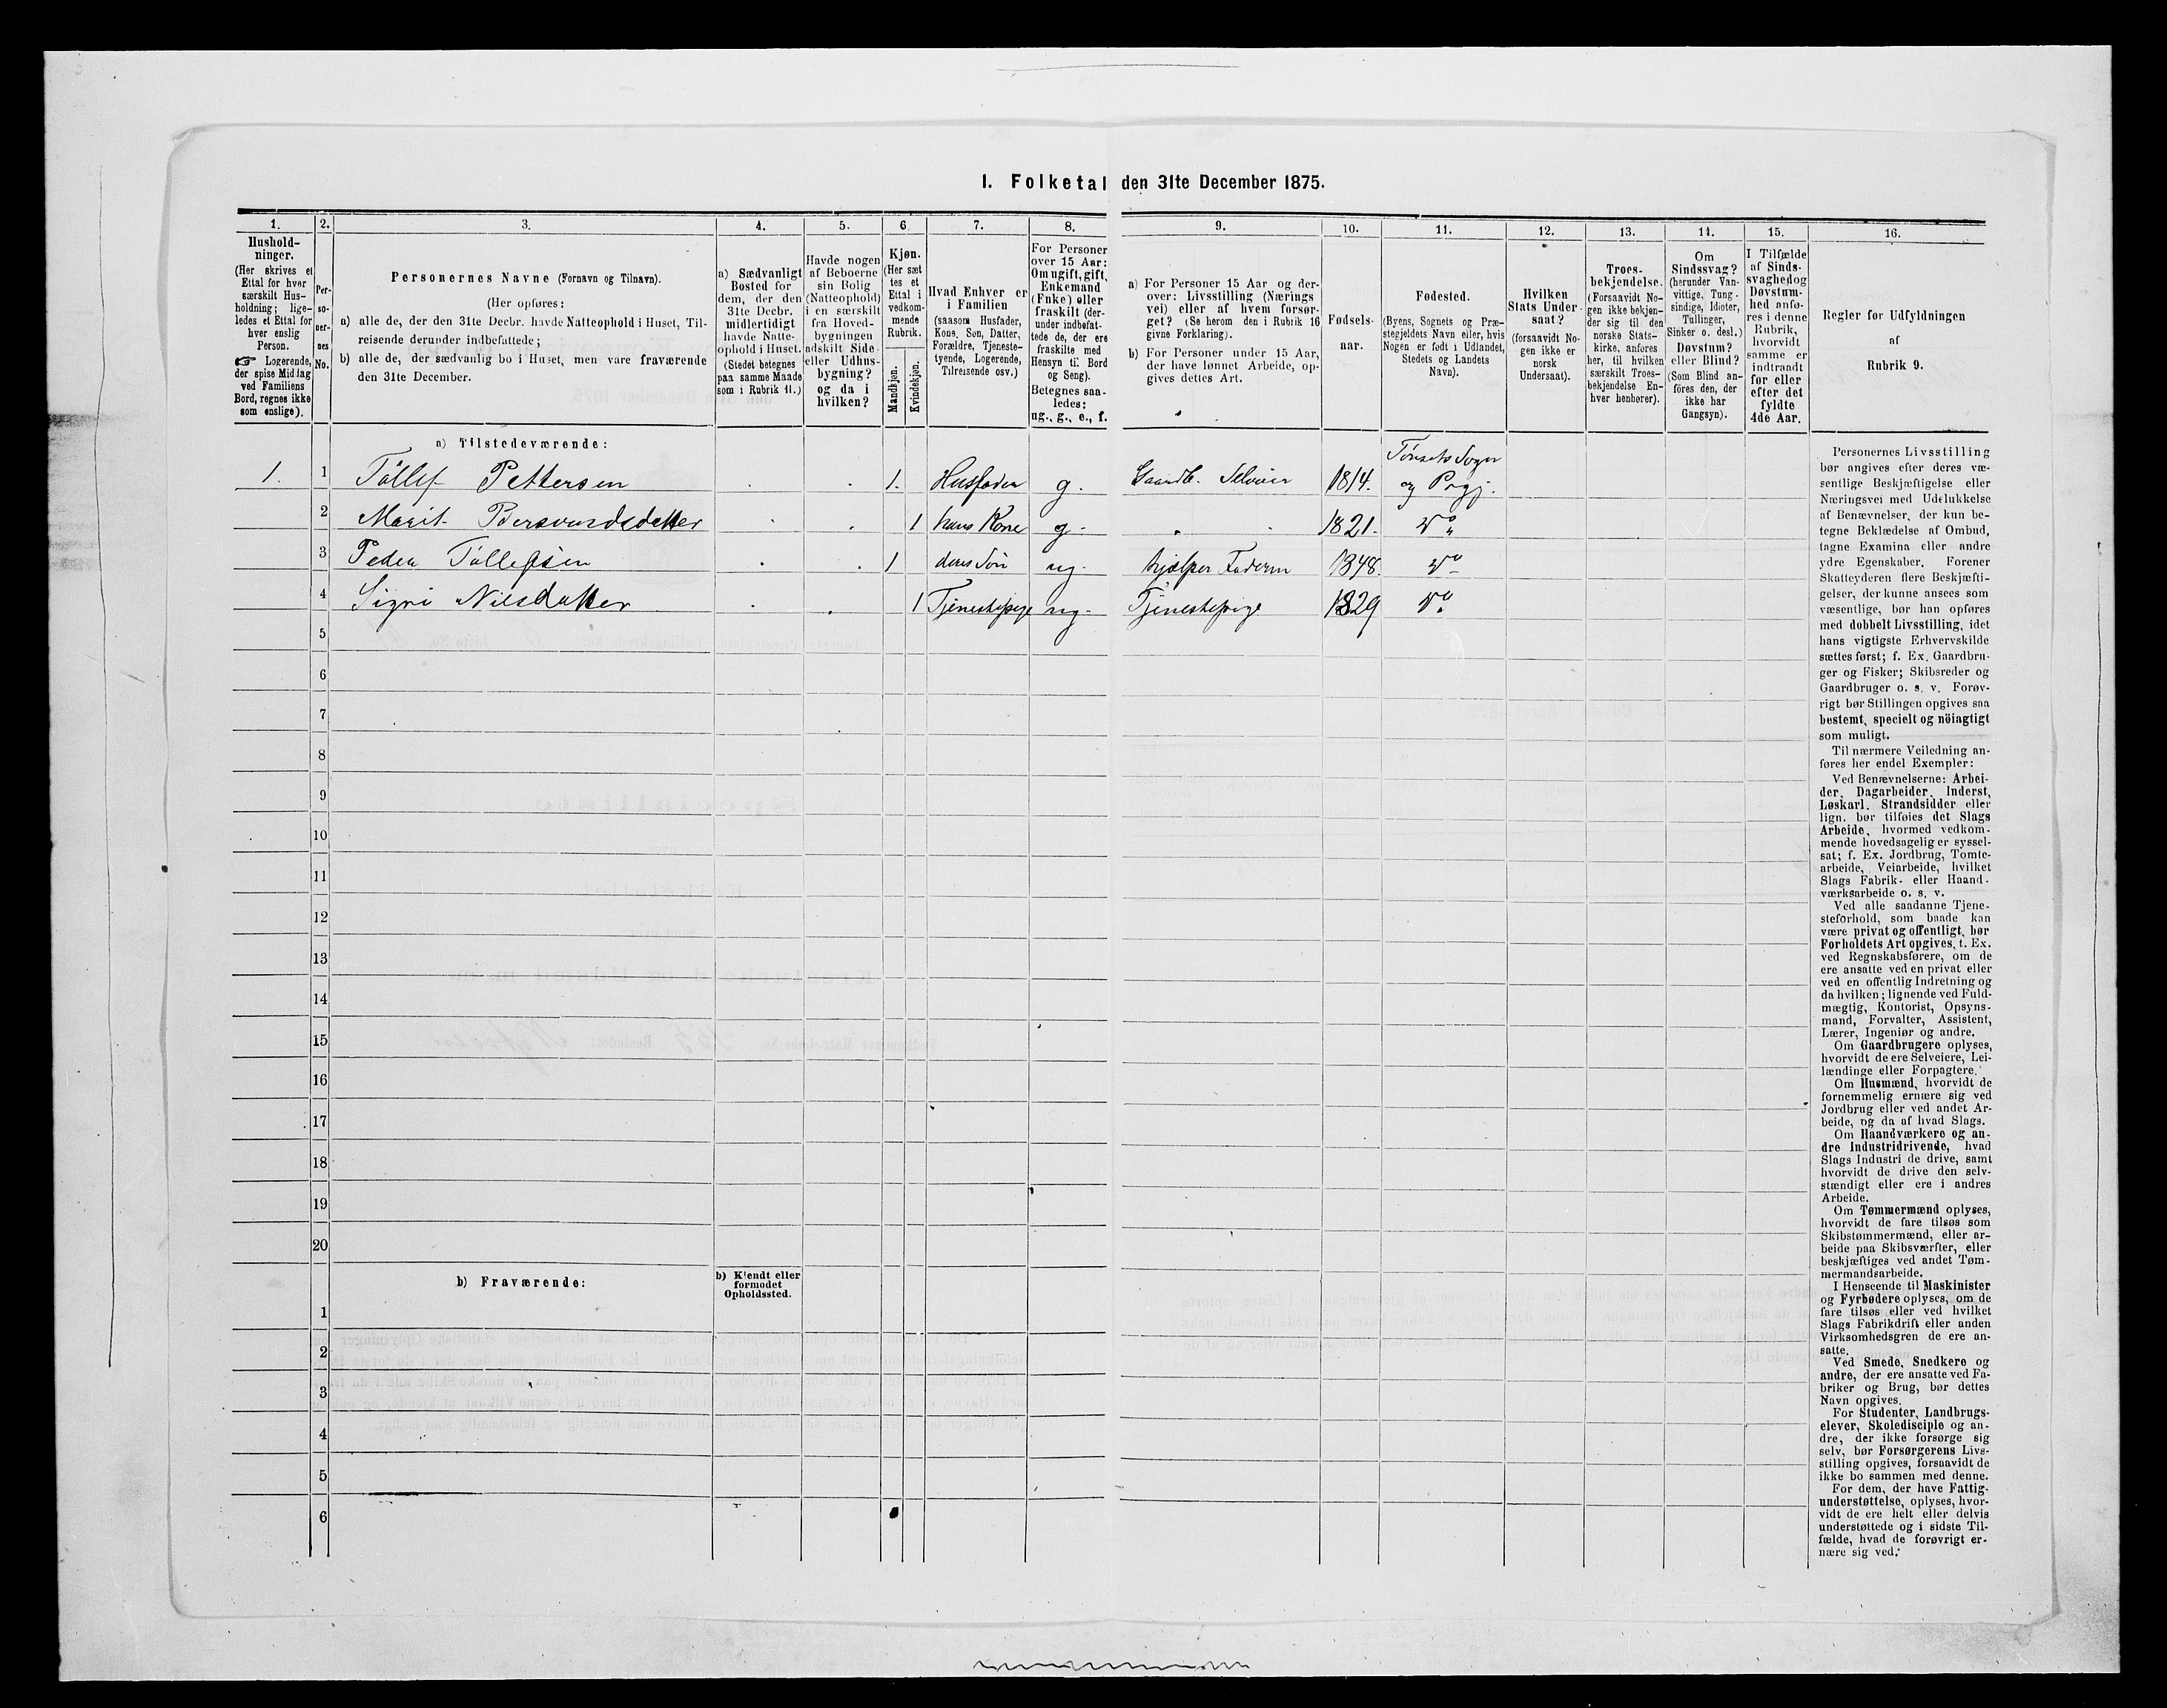 I. Folketal den 31te December 1875.
1.
2.
3.
4.
5.
6.
7.
8.
9.
10.
11.
12.
13.
14.
15.
16.
Hushold-
ninger.
(Her skrives et
Ettal for hver
særskilt Hus-
holdning; lige-
ledes et Ettal for
hver enslig
Person.
☞ Logerende,
der spise Middag
ved Familiens
Bord, regnes ikke
som enslige).
Per-
so-
ner-
nes
No.
Personernes Navne (Fornavn og Tilnavn).
(Her opføres:
a) alle de, der den 31te Decbr. havde Natteophold i Huset, Til-
reisende derunder indbefattede;
b) alle de, der sædvanlig bo i Huset, men vare fraværende
den 31te December.
a) Sædvanligt
Bosted for
dem, der den
31te Decbr.
midlertidigt
havde Natte-
ophold i Huset.
(Stedet betegnes
paa samme Maade
som i Rubrik 11.)
Havde nogen
af Beboerne
sin Bolig
(Natteophold)
i en særskilt
fra Hoved-
bygningen
adskilt Side-
eller Udhus-
bygning?
og da i
hvilken?
Kjøn.
(Her sæt
tes et
Ettal i
vedkom-
mende
Rubrik.
Mandkjøn.
Kvindekjøn.
Hvad Enhver er
i Familien
(saasom Husfader,
Kone, Søn, Datter,
Forældre, Tjeneste-
tyende, Logerende,
Tilreisende osv.)
For Personer
over 15 Aar:
Om ugift, gift,
Enkemand
(Enke) eller
fraskilt (der-
under indbefat-
tede de, der ere
fraskilte med
Hensyn til Bord
og Seng).
Betegnes saa-
ledes:
ug., g., e., f.
a) For Personer 15 Aar og der-
over: Livsstilling (Nærings
vei) eller af hvem forsør-
get? (Se herom den i Rubrik 16
givne Forklaring).
b) For Personer under 15 Aar,
der have lønnet Arbeide, op-
gives dettes Art.
Fødsels-
aar.
Fødested.
(Byens, Sognets og Præ-
stegjeldets Navn eller, hvis
Nogen er født i Udlandet,
Stedets og Landets
Navn).
Hvilken
Stats Under-
saat?
(forsaavidt No-
gen ikke er
norsk
Undersaat).
Troes-
bekjendelse.
(Forsaavidt No-
gen ikke bekjen-
der sig til den
norske Stats-
kirke, anføres
her, til hvilken
særskilt Troes-
bekjendelse En-
hver henhører).
Om
Sindssvag?
(herunder Van-
vittige, Tung-
sindige, Idioter,
Tullinger,
Sinker o. desl.)
Døvstum?
eller Blind?
(Som Blind an-
føres den, der
ikke har
Gangsyn).
I Tilfælde
af Sinds-
svaghed og
Døvstum-
hed anfø-
res i denne
Rubrik,
hvorvidt
samme er
indtraadt
før eller
efter det
fyldte
4de Aar.
Regler for Udfyldningen
af
Rubrik 9.
a) Tilstedeværende:
1. 1 Tøllef Pettersen 1. Husfader g. Gaardb. Selveier 1814. Tønsets Sogn
og Prgj.
2 Marit 1 hans Kone g. 1821. Do
3 Peder Tøllefsen 1 deres Søn ug. hjælper Faderen 1848. Do
4 Sigri Nilsdatter 1 Tjenestepige ug. Tjenestepige 1829 Do
5
6
7
8
9
10
11
12
13
14
15
16
17
18
19
20
b) Fraværende:
b) Kjendt eller
formodet
Opholdssted.
1
2
3
4
5
6
Personernes Livsstilling
bør angives efter deres væ-
sentlige Beskjæftigelse eller
Næringsvei med Udelukkelse
af Benævnelser, der kun be-
tegne Beklædelse af Ombud,
tagne Examina eller andre
ydre Egenskaber. Forener
Skatteyderen flere Beskjæfti-
gelser, der kunne ansees som
væsentlige, bør han opføres
med dobbelt Livsstilling, idet
hans vigtigste Erhvervskilde
sættes først; f. Ex. Gaardbru-
ger og Fisker; Skibsreder og
Gaardbruger o. s. v. Forøv-
rigt bør Stillingen opgives saa
bestemt, specielt og nöiagtigt
som muligt.
Til nærmere Veiledning an-
føres her endel Exempler:
Ved Benævnelserne: Arbei-
der, Dagarbeider, Inderst,
Løskarl, Strandsidder eller
lign. bør tilføies det Slags
Arbeide, hvormed vedkom-
mende hovedsagelig er syssel-
sat; f. Ex. Jordbrug, Tomte-
arbeide, Veiarbeide, hvilket
Slags Fabrik- eller Haand-
værksarbeide o. s. v.
Ved alle saadanne Tjene-
steforhold, som baade kan
være privat og offentligt, bør
Forholdets Art opgives, t. Ex.
ved Regnskabsførere, om de
ere ansatte ved en privat eller
ved en offentlig Indretning og
da hvilken; lignende ved Fuld-
mægtig, Kontorist, Opsyns-
mand, Forvalter, Assistent,
Lærer, Ingeniør og andre.
Om Gaardbrugere oplyses,
hvorvidt de ere Selveiere, Lei-
lændinge eller Forpagtere.
Om Husmænd, hvorvidt de
fornemmelig ernære sig ved
Jordbrug eller ved andet Ar-
beide, og da af hvad Slags.
Om Haandværkere og an-
dre Industridrivende, hvad
Slags Industri de drive, samt
hvorvidt de drive den selv-
stændigt eller ere i andres
Arbeide.
Om Tømmermænd oplyses,
hvorvidt de fare tilsøs som
Skibstømmermænd, eller ar-
beide paa Skibsværfter, eller
beskjæftiges ved andet Tøm-
mermandsarbeide.
I Henseende til Maskinister
og Fyrbødere oplyses, om de
fare tilsøs eller ved hvilket
Slags Fabrikdrift eller anden
Virksomhedsgren de ere an-
satte.
Ved Smede, Snedkere og
andre, der ere ansatte ved Fa-
briker og Brug, bør dettes
Navn opgives.
For Studenter, Landbrugs-
elever, Skoledisciple og an-
dre, der ikke forsørge sig
selv, bør Forsørgerens Livs-
stilling opgives, forsaavidt de
ikke bo sammen med denne.
For dem, der have Fattig-
understøttelse, oplyses, hvor-
vidt de ere helt eller delvis
understøttede og i sidste Til-
fælde, hvad de forøvrigt er-
nære sig ved.